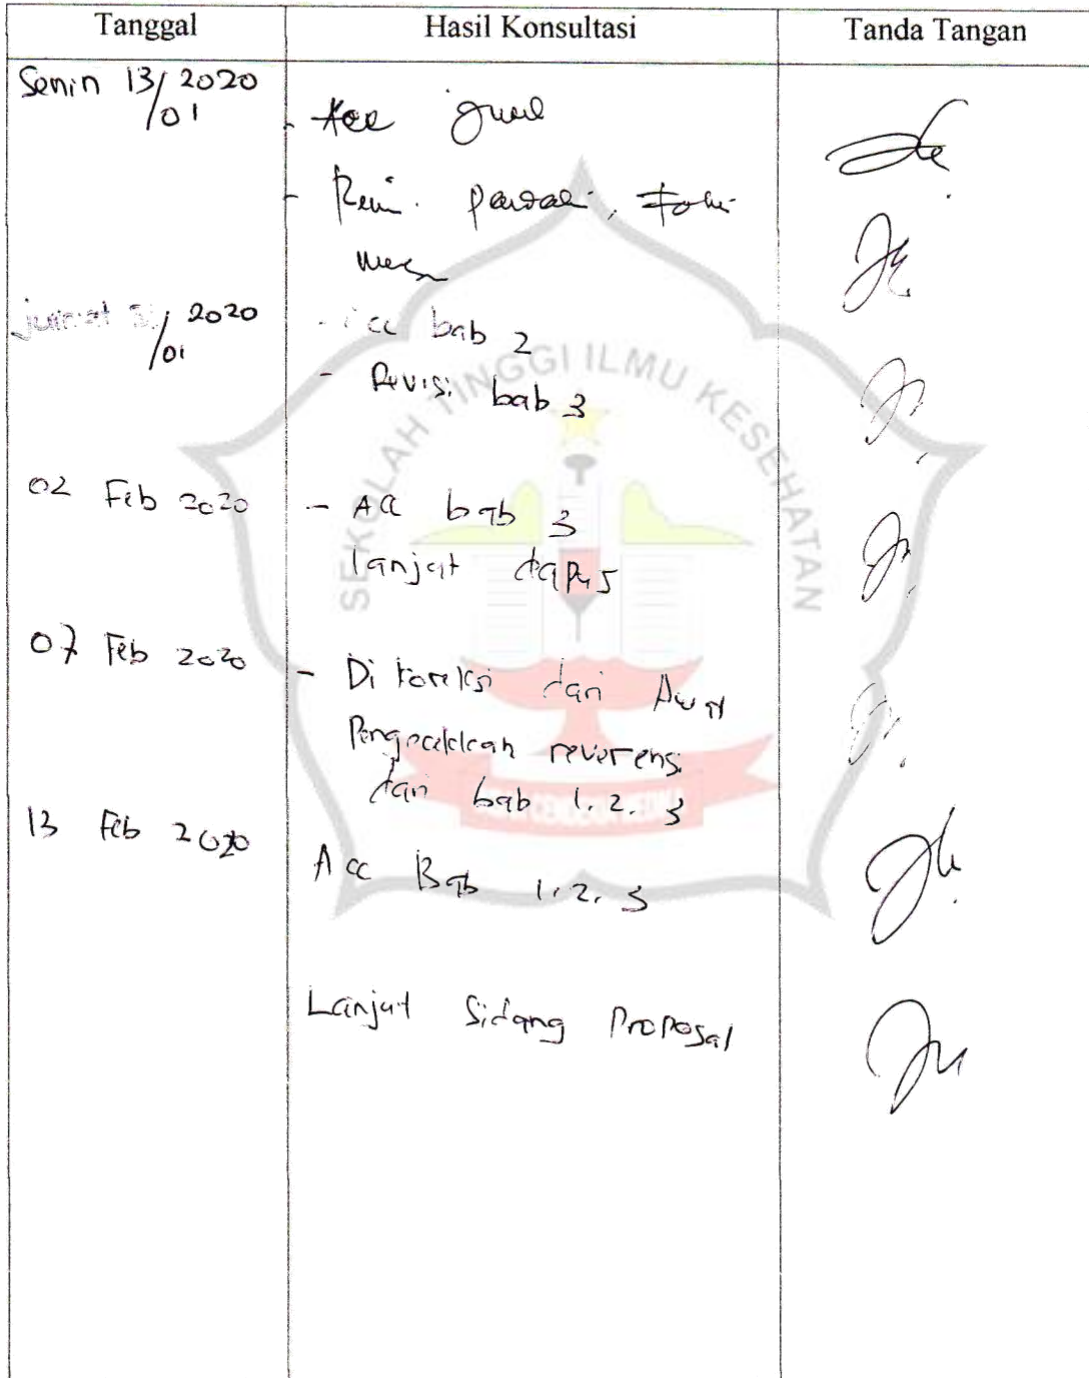 Tanggal Hasil Konsultasi Tanda Tangan
Senin 13/01 2020
- Acc judul
- Revisi
Jum'at 31/01 2020 - Acc bab 2
- Revisi bab 3
02 Feb 2020 - Acc bab 3
lanjut dapus
07 Feb 2020 - Di koreksi dari Awal
Pengecekkan reverensi
dari bab 1. 2. 3
13 Feb 2020 Acc Bab 1. 2. 3
Lanjut Sidang Proposal
SEKOLAH TINGGI ILMU KESEHATAN